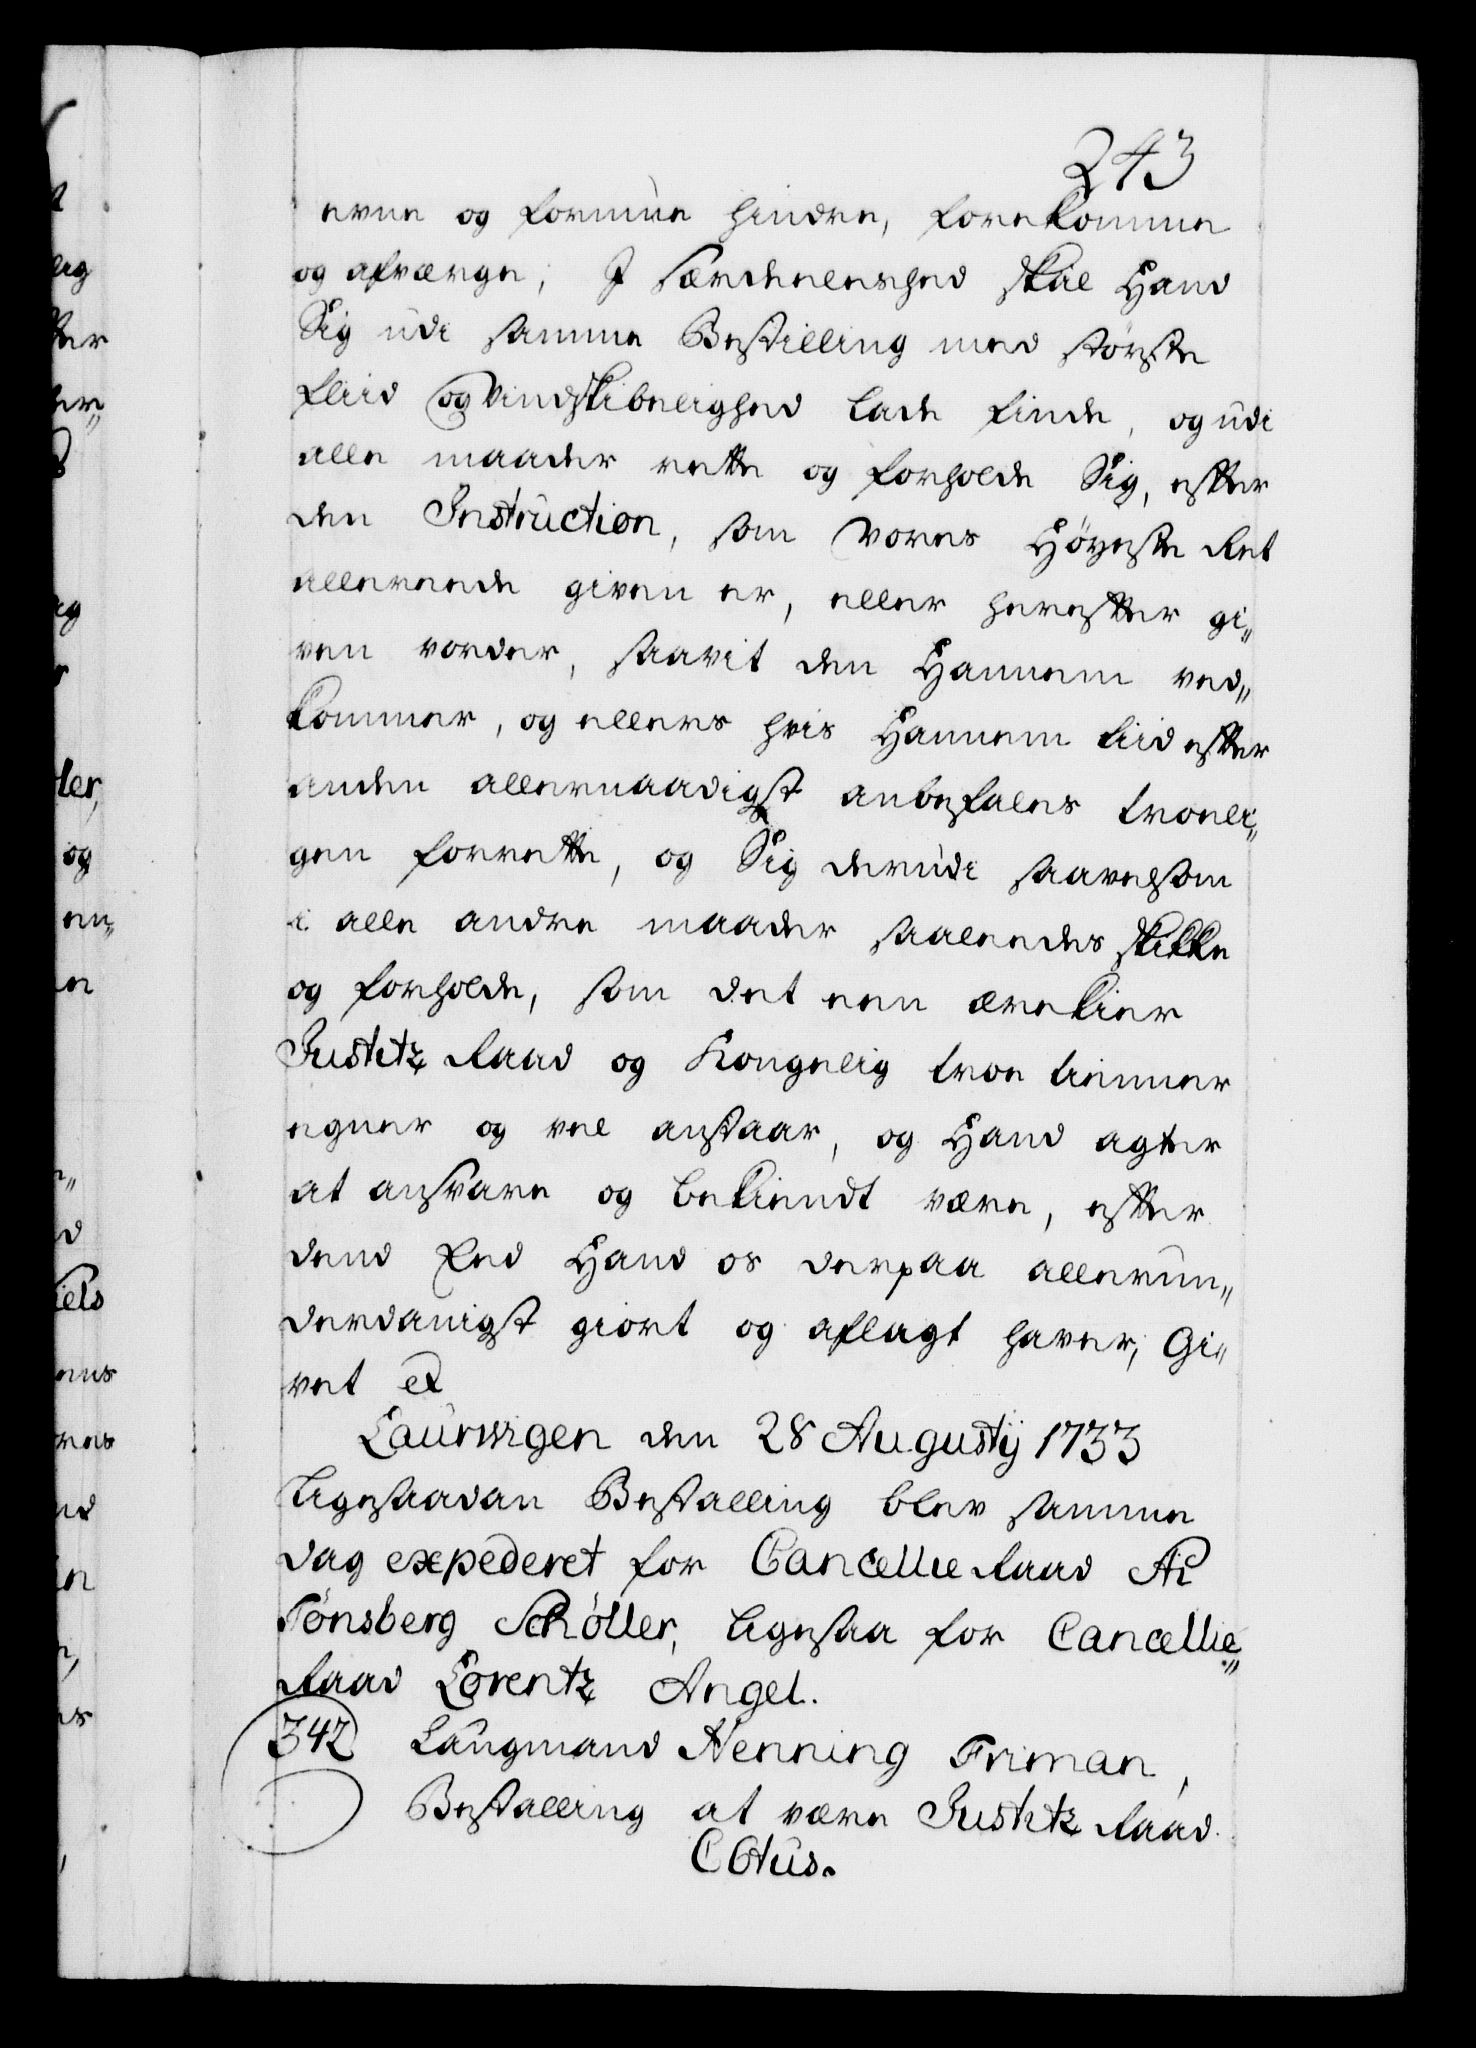 243
evne og formue hindre, forekomme
og afverge, I Særdeeleshed skal Hand
Sig udi samme Bestilling med største
fliid og Vindskibelighed lade finde, og udi
alle maader rette og forholde Sig, efter
den Instruction, som Vores Høyeste Ret
allereede given er, eller herefter gi„
ven vorder, saavit den Hannem ved„
kommer, og ellers hvis Hannem tiid efter
anden allernaadigst anbefales troeli„
gen forrette, og Sig derudi saavelsom
i alle andre maader saaleedes skikke
og forholde, som det een ærekier
Justitz Raad og Kongelig troe tiener
egner og vel anstaar, og Hand agter
at ansvare og bekiendt være, efter
dend Eed Hand os derpaa allerun„
derdanigst giort og aflagt haver, Gi„
vet et
Laurwigen den 28 Augustij 1733
Ligesaadan Bestalling blev samme
dag expederet for Cancellie Raad
Tønsberg Schøller, ligesaa for Cancellie„
Raad Lorentz Angel.
342 Laugmand Henning Friman,
Bestalling at være Justitz Raad.
C 6tus.